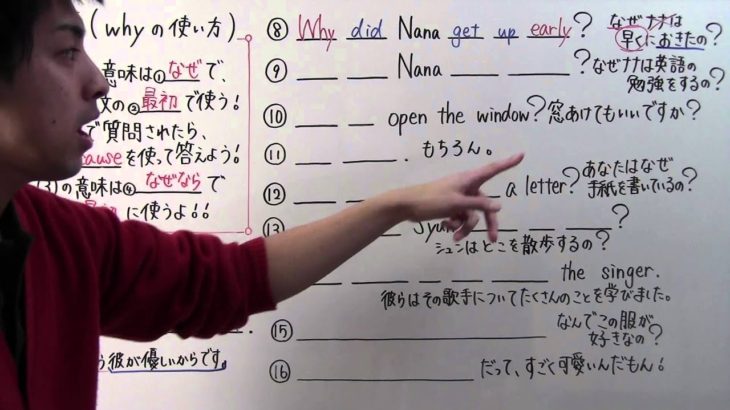 (whyの使い方)
意味は①なぜで、
文の②最初で使う!
で質問されたら、
causeを使って答えよう!
(3)の意味は④なぜならで
に使うよ!!
彼が優しいからです。
⑧ Why did Nana get up early? なぜナナは
早くにおきたの?
⑨ Nana ? なぜナナは英語の
勉強をするの?
⑩ open the window? 窓あけてもいいですか?
⑪ . もちろん。
⑫ a letter? あなたはなぜ
手紙を書いているの?
⑬ ?
シュンはどこを散歩するの?
the singer.
彼らはその歌手についてたくさんのことを学びました。
⑮ なんでこの服が
好きなの?
⑯ だって、すごく可愛いんだもん!